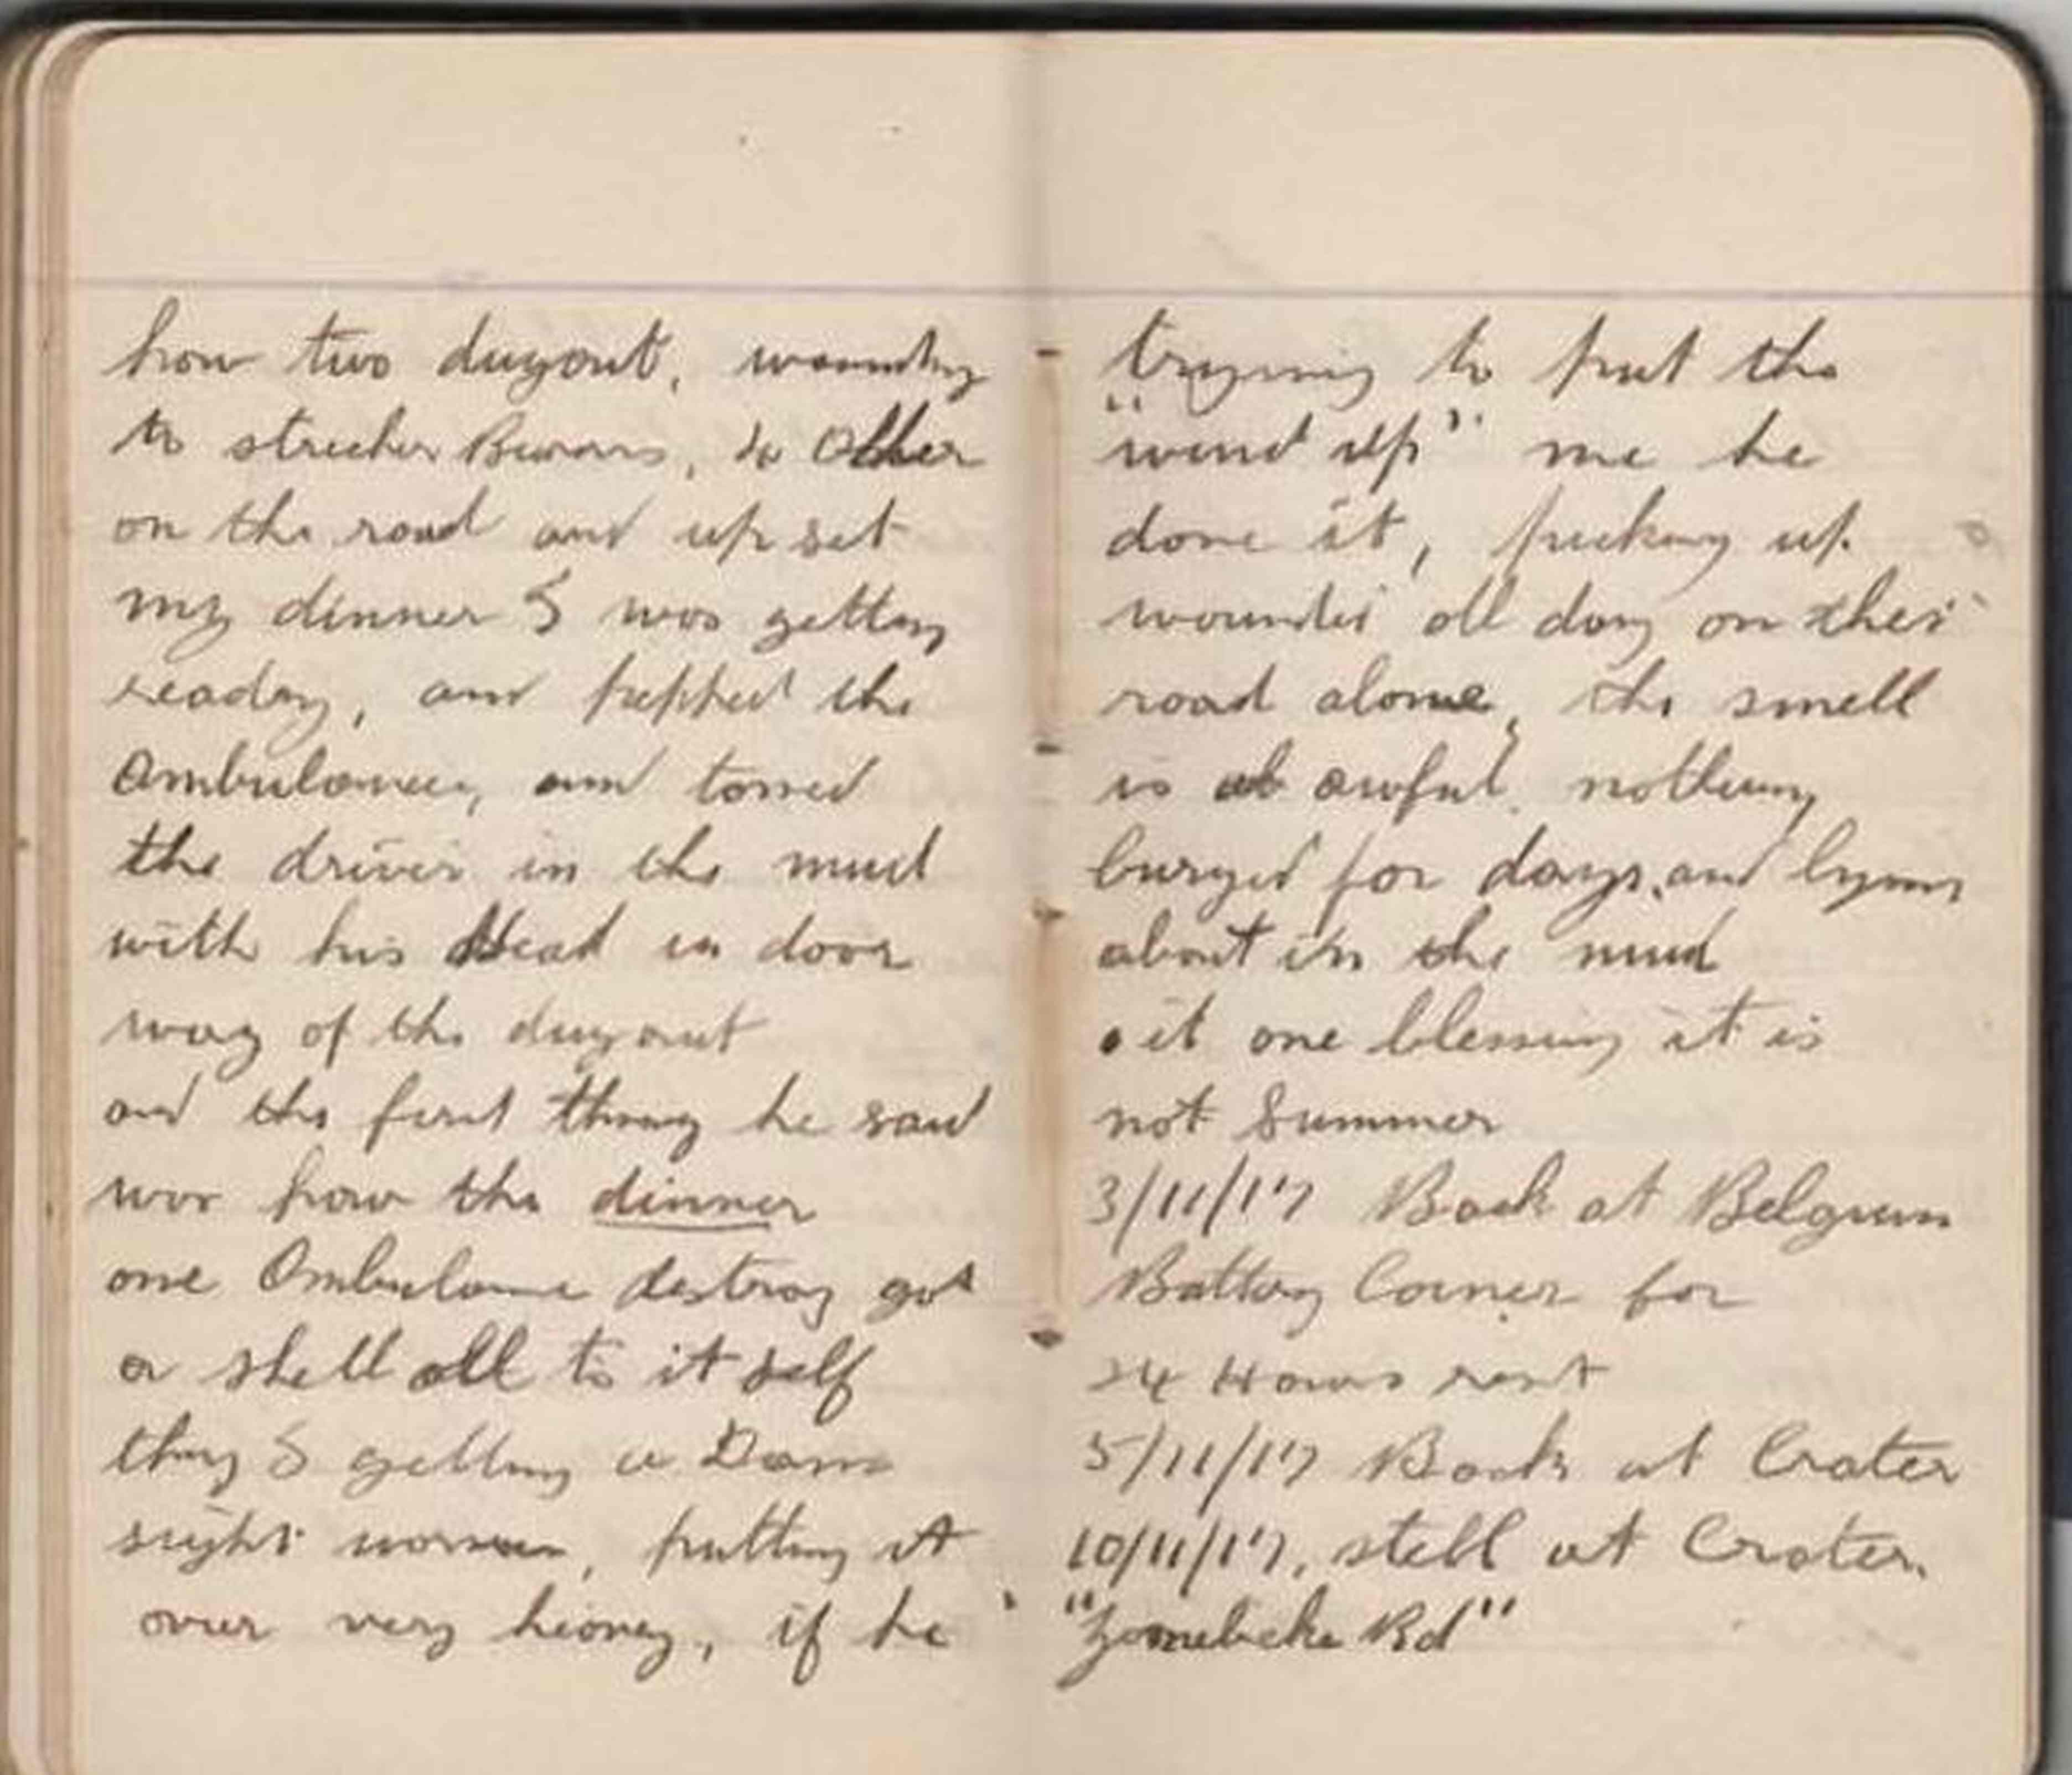 how two dugout, wounding
to strecher Bearers, 4 Other
on the road and up set
my dinner I was getting
ready, and pepped the
Ambulance, and tossed
the driver in the mud
with his Head in door
way of the dugout
and the first thing he said
was how the dinner
one Ambulance destroy got
a shell all to it self
thing I getting a Dam
sight worse, putting it
over very heavey, if he
trying to put the
"wind up" me he
done it, picking up
wounded all day on this
road alone, the smell
is awful. nothing
buryed for days, and lying
about in the mud
it one blessing it is
not Summer
3/11/17 Back at Belgium
Battery Corner for
24 Hours rest
5/11/17 Back at Crater
10/11/17, still at Crater.
"Zonnebeke Rd"